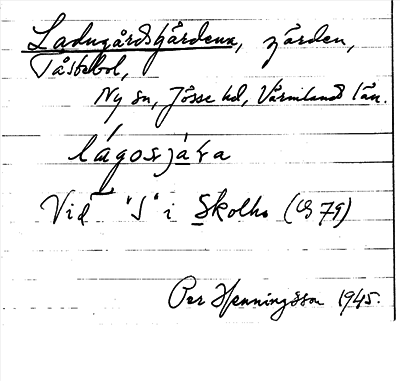 Ladugårdsgärdena, gärden,
Tåstebol,
Ny sn, Jösse hd, Värmlands län.
lágosjáṛa
Vid "S" i Skolhs (C 79)
Per Henningsson 1945.